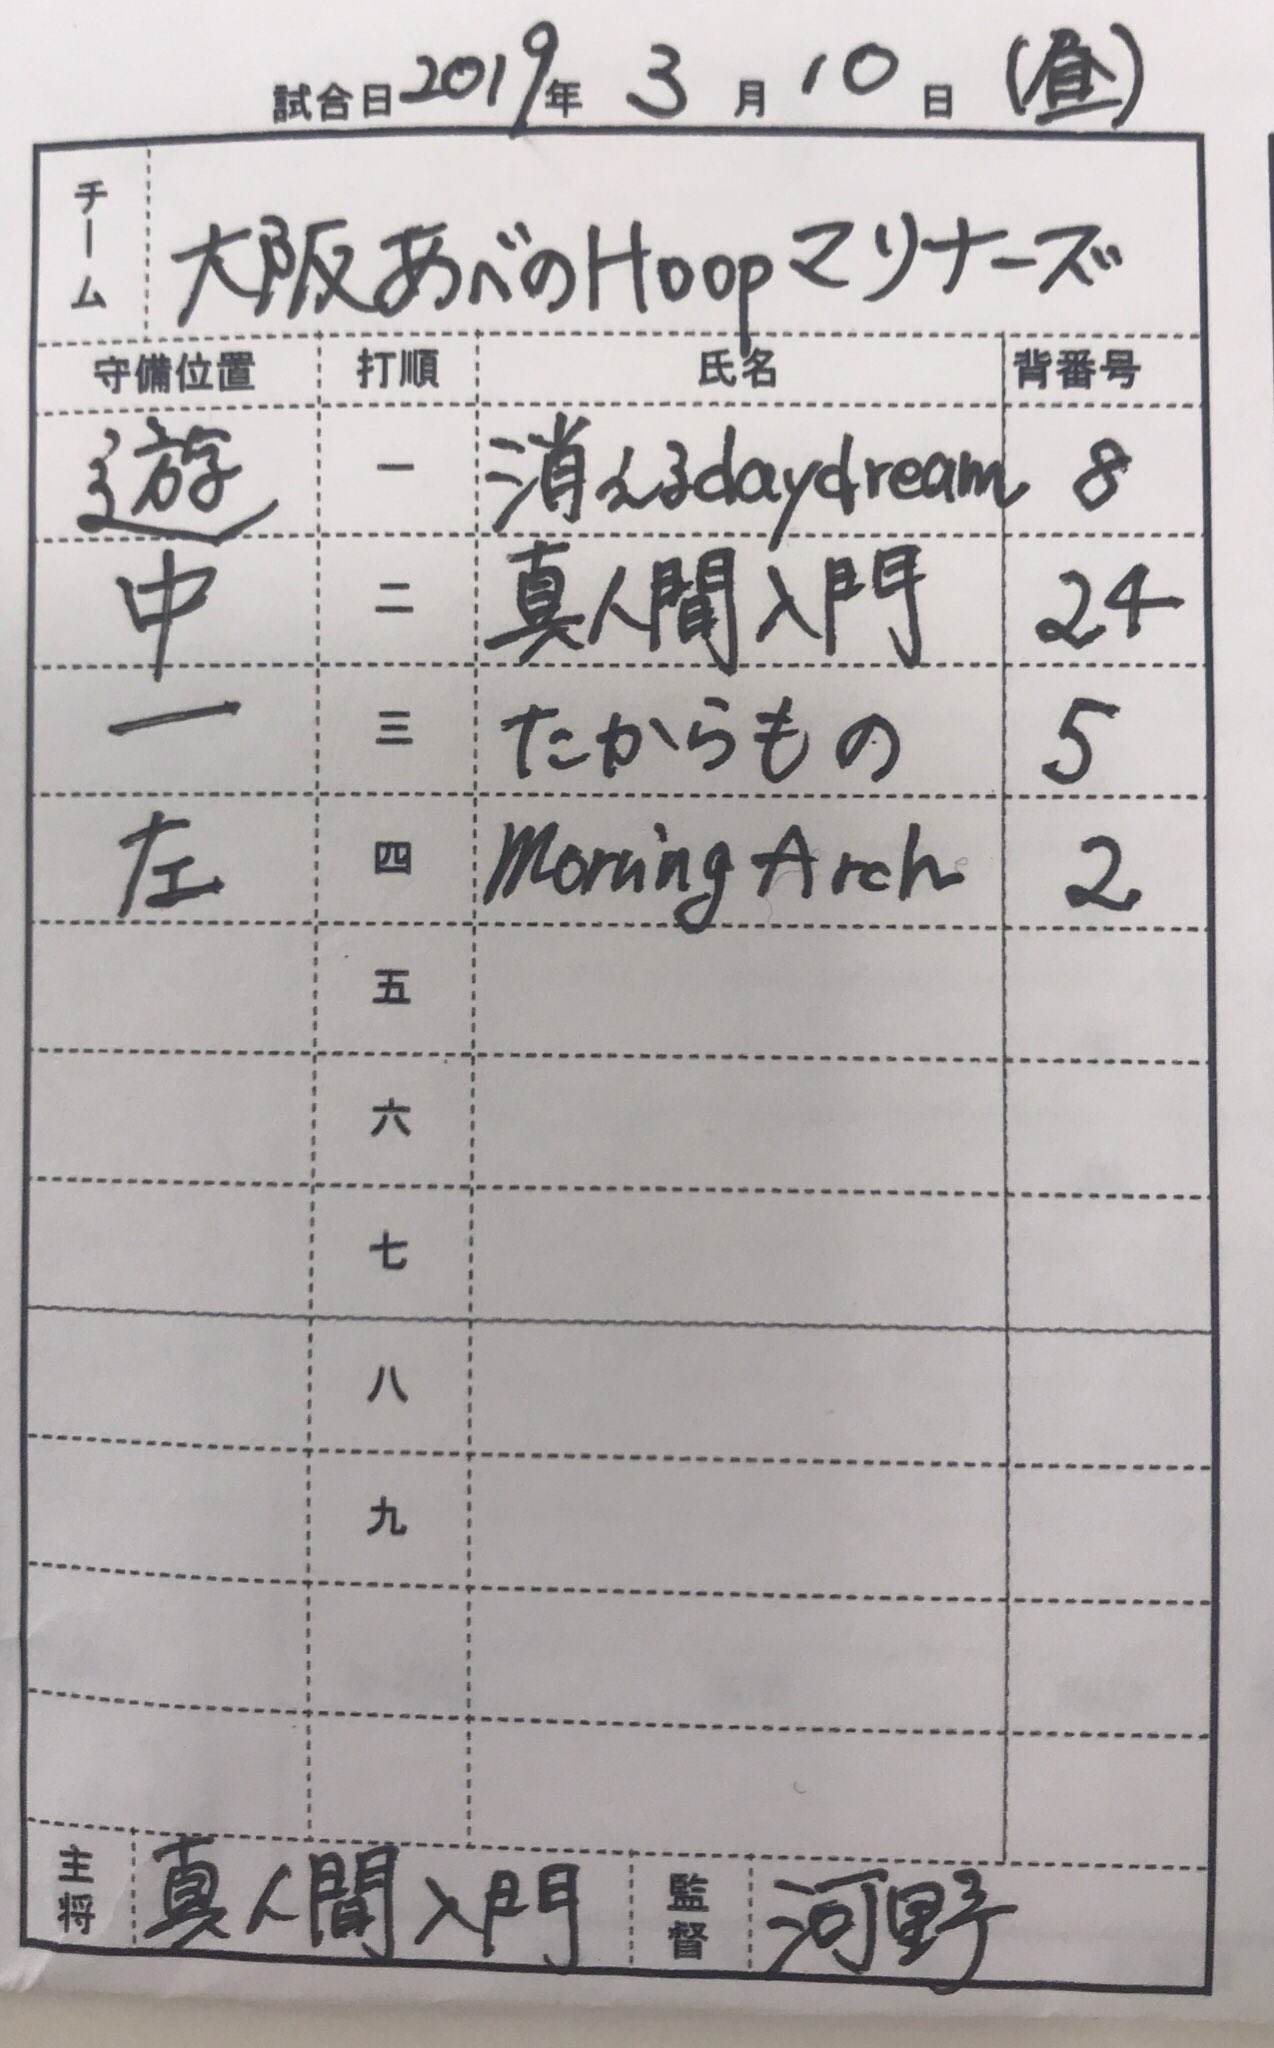 試合日 2019年 3月 10日 (昼)
チーム 大阪あべのHoopマリナーズ
守備位置 打順 氏名 背番号
遊 一 消えるdaydream 8
中 二 真人間入門 24
一 三 たからもの 5
左 四 Morning Arch 2
五
六
七
八
九
主将 真人間入門 監督 河野